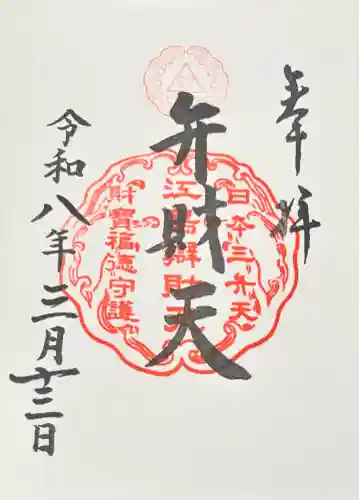 奉拝
日本三弁天
江島辯財天
財寶福徳守護
弁財天
令和八年三月十三日